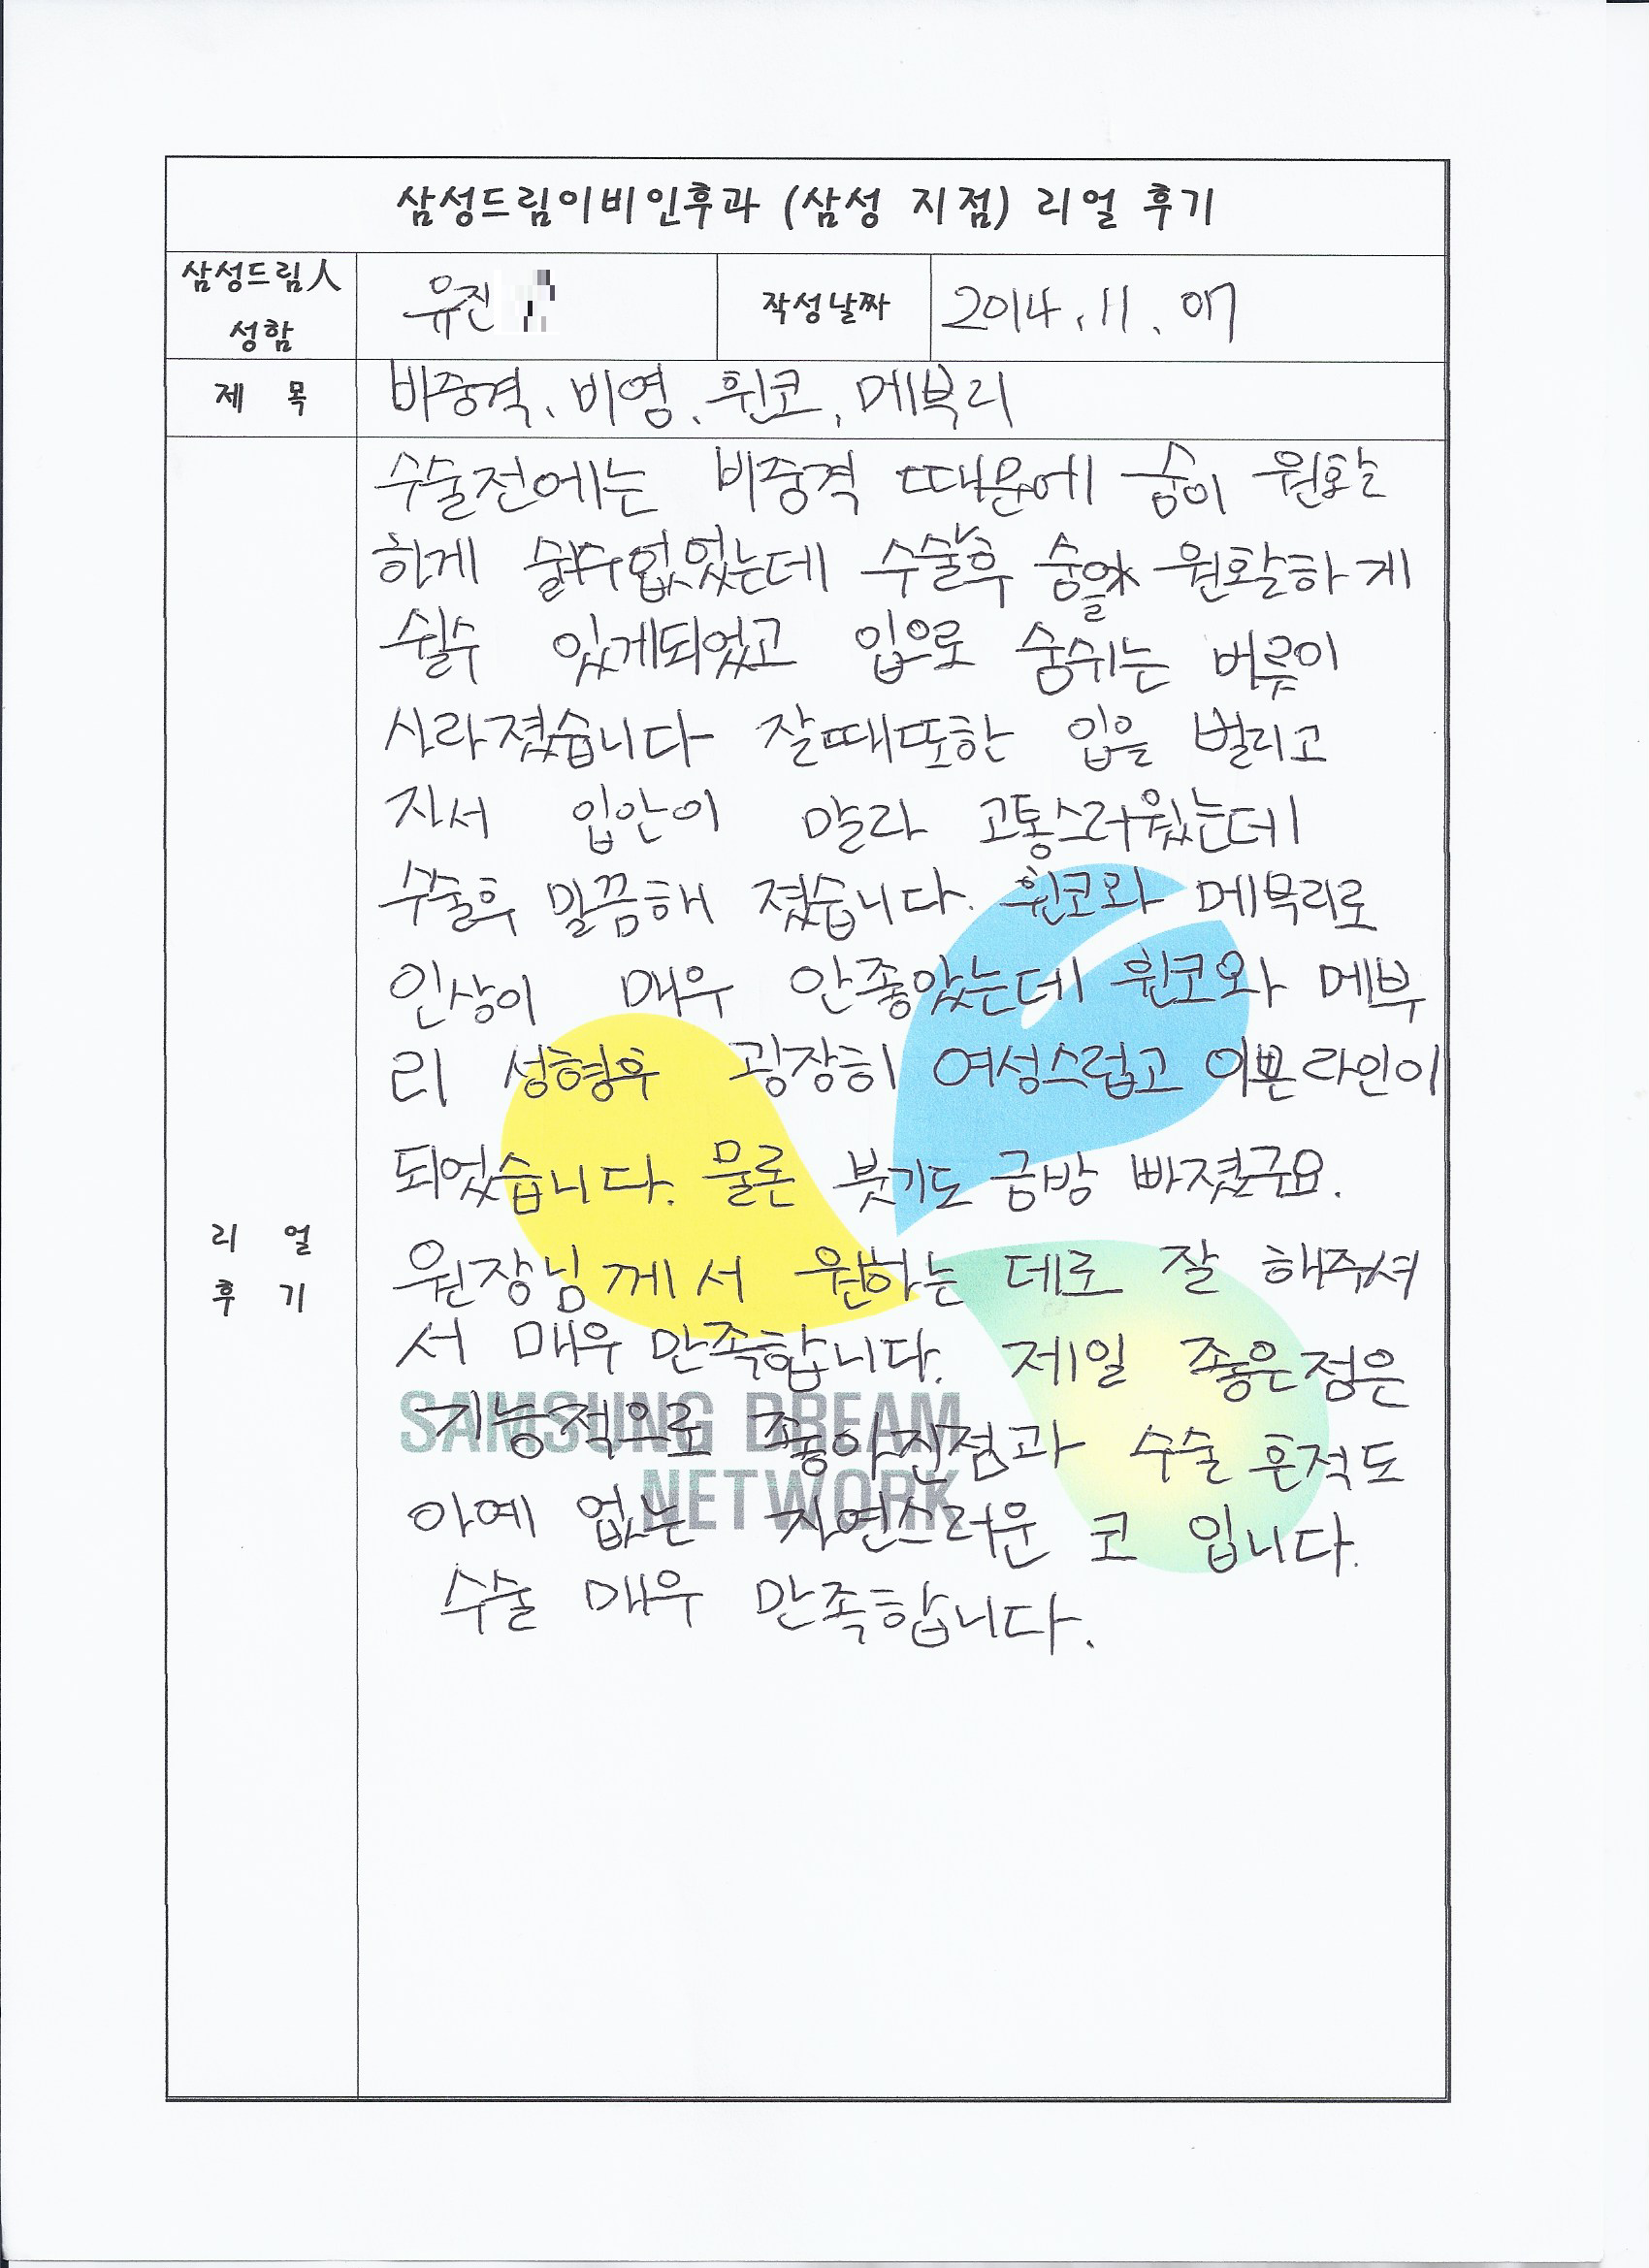 삼성드림이비인후과 (삼성 지점) 리얼 후기
삼성드림人
성함
유진
작성날짜
2014.11.07
제 목
비중격、비염、휜코、메부리
수술전에는 비중격 때문에 숨이 원활
하게 쉴수없었는데 수술후 숨을 원활하게
쉴수 있게되었고 입으로 숨쉬는 버릇이
사라졌습니다 잘때또한 입을 벌리고
자서 입안이 말라 고통스러웠는데
수술후 말끔해 졌습니다. 휜코와 메부리로
인상이 매우 안좋았는데 휜코와 메부
리 성형후 굉장히 여성스럽고 이쁜라인이
되었습니다. 물론 붓기도 금방 빠졌구요.
원장님께서 원하는 데로 잘 해주셔
서 매우 만족합니다. 제일 좋은점은
기능적으로 좋아진점과 수술 흔적도
아예 없는 자연스러운 코 입니다.
수술 매우 만족합니다.
리 얼
후 기
SAMSUNG DREAM
NETWORK